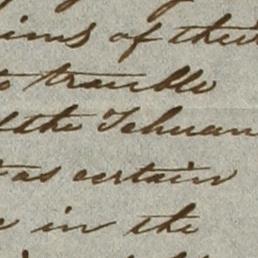 ims of their
to trouble
the Tehuan
as certain
in the